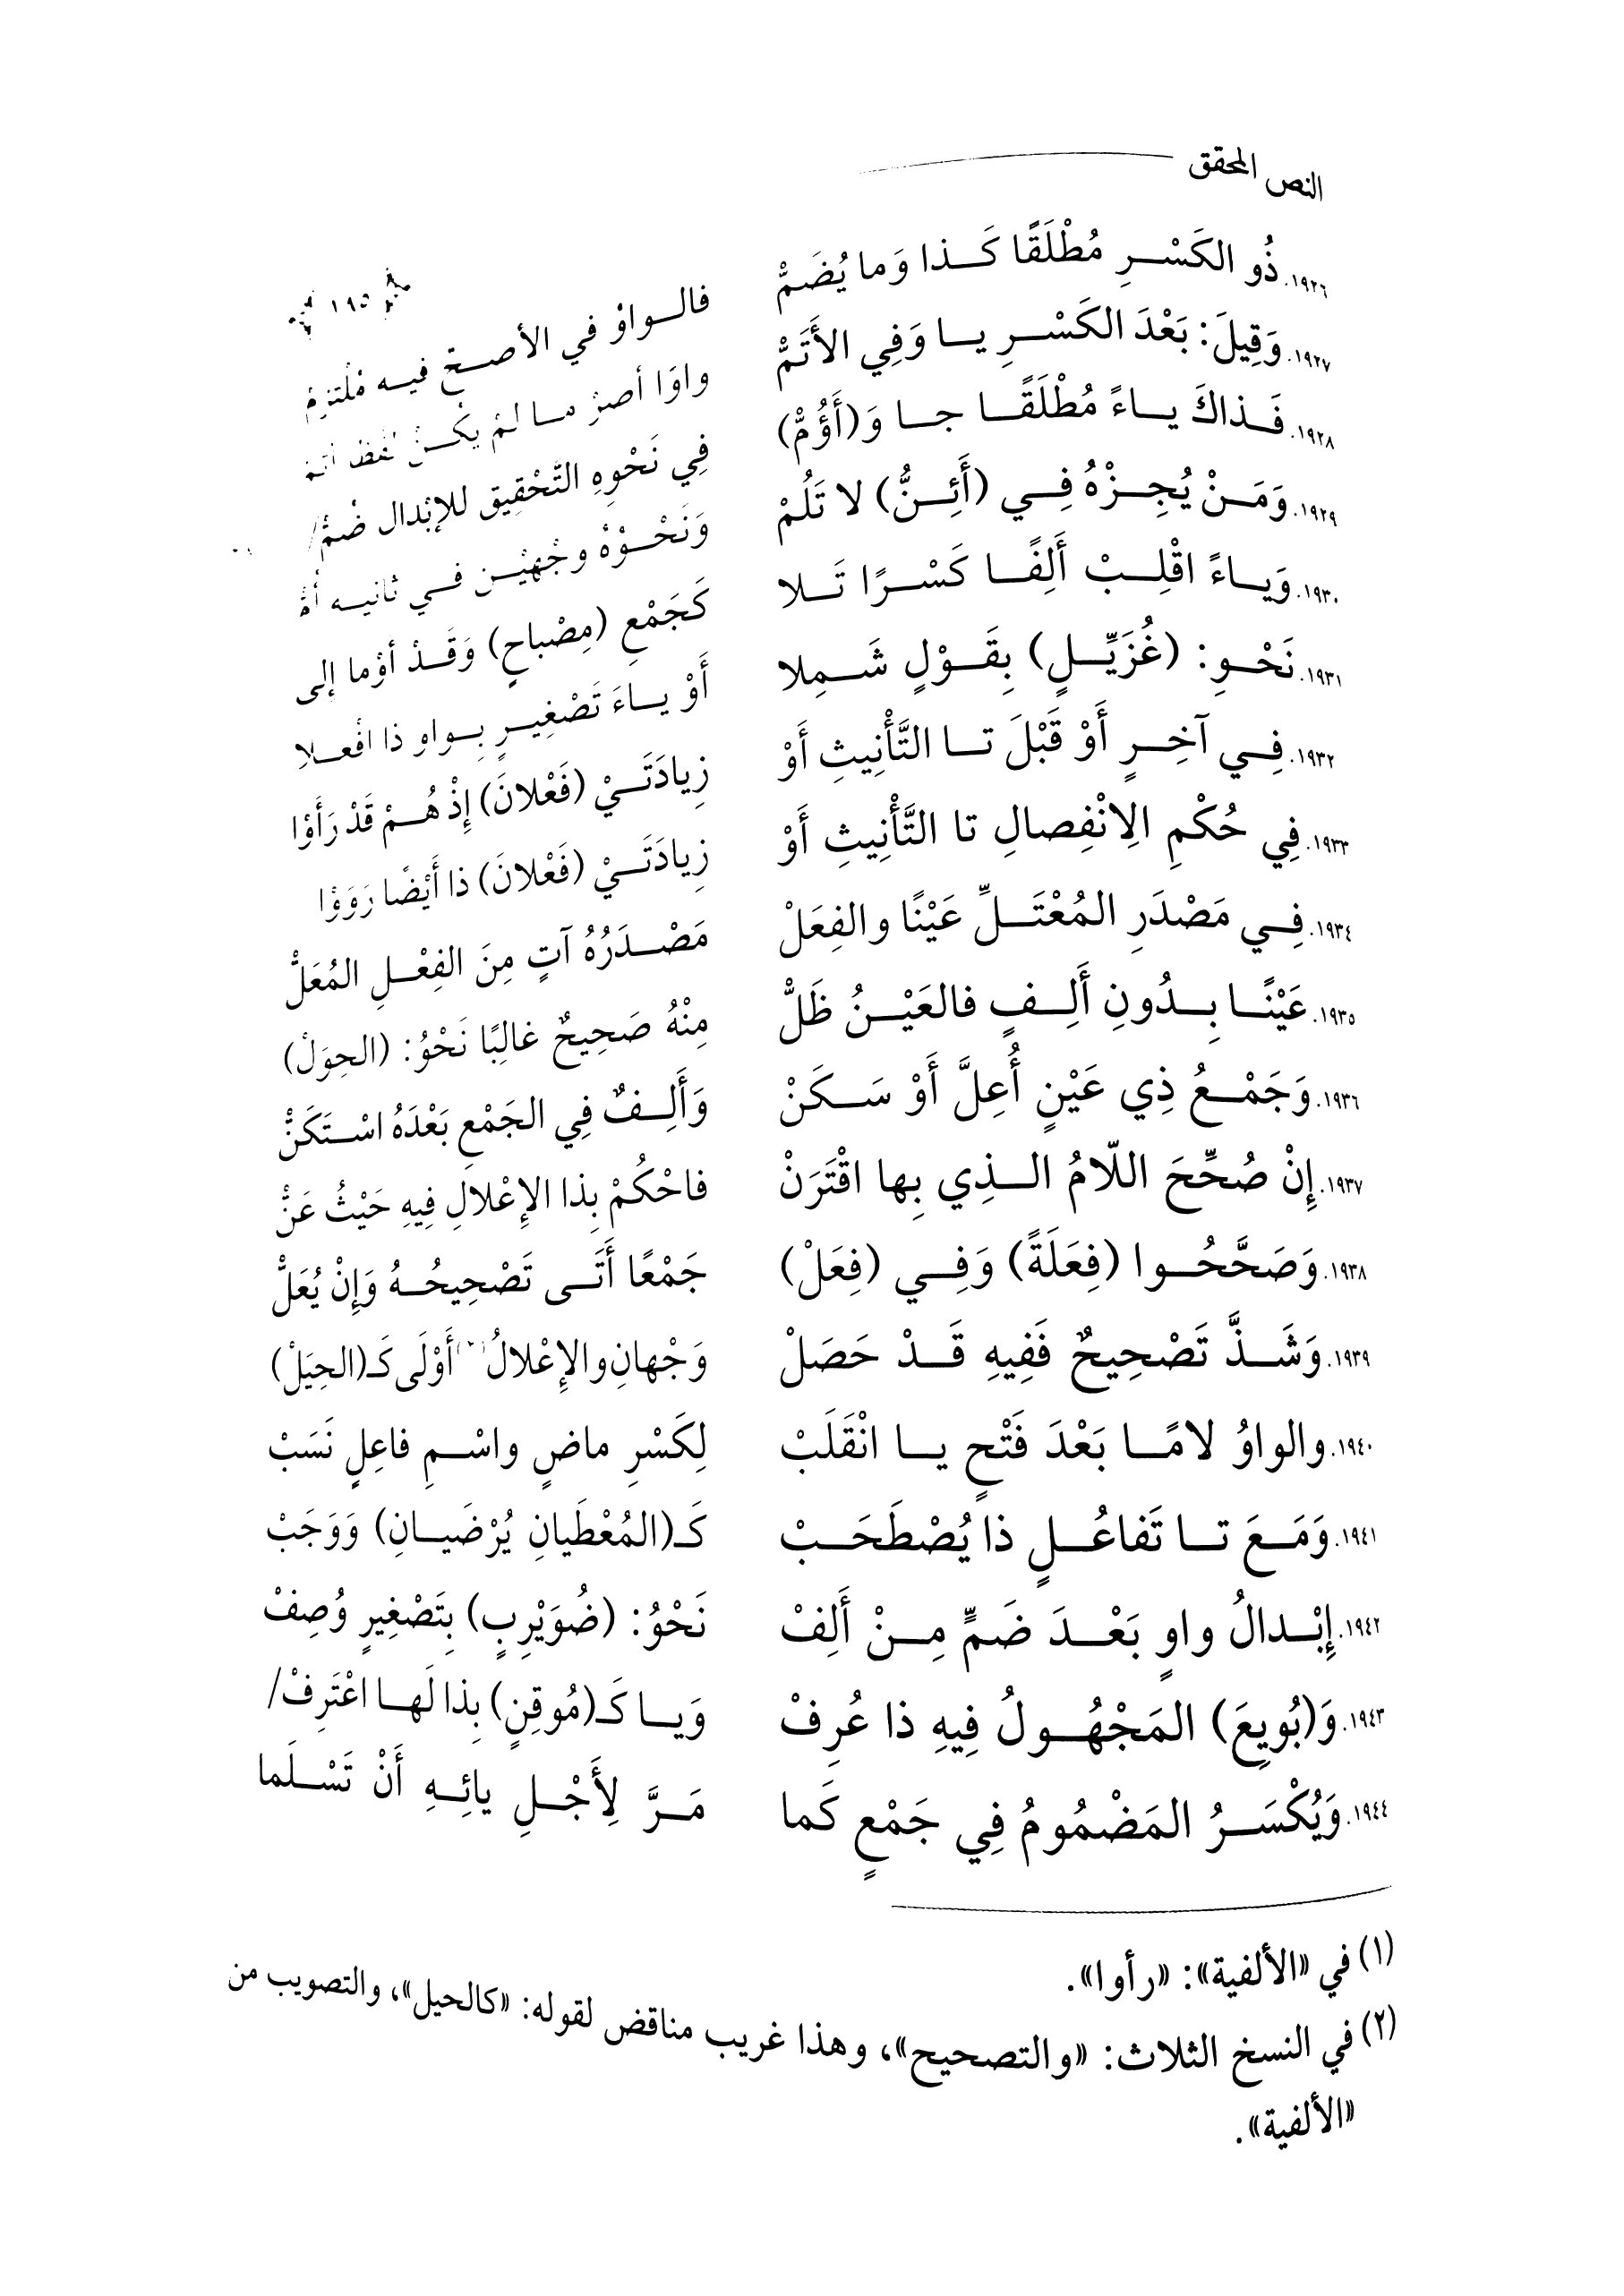 النص المحقق
١٩٥
١٩٢٦. ذُو الكَسْرِ مُطْلَقًا كَذا وَما يُضَمّْ فالواوُ في الأصحّ فيه مُلْتَزمْ
١٩٢٧. وَقِيلَ: بَعْدَ الكَسْرِ يا وَفِي الأَتَمّْ واوًا أصرْ ما لمْ يكُنْ لفظًا أتمّْ
١٩٢٨. فَذاكَ ياءً مُطْلَقًا جا وَ(أَؤُمّْ) فِي نَحْوِهِ التَّحْقِيق للإبْدال ضُمّْ/
١٩٢٩. وَمَنْ يُجِزْهُ فِي (أَئِنُّ) لا تَلُمْ وَنَحْوُهُ وجْهيْن في ثانيه أُمّْ
١٩٣٠. وَياءً اقْلِبْ أَلِفًا كَسْرًا تَلا كَجَمْعِ (مِصْباحٍ) وَقَدْ أوْما إلى
١٩٣١. نَحْوِ: (غُزَيِّلٍ) بِقَوْلٍ شَمِلا أَوْ ياءَ تَصْغِيرٍ بِواو ذا افْعلا
١٩٣٢. فِي آخِرٍ أَوْ قَبْلَ تا التَّأْنِيثِ أَوْ زِيادَتَيْ (فَعْلانَ) إِذْ هُمْ قَدْ رَأَوْا
١٩٣٣. فِي حُكْمِ الِانْفِصالِ تا التَّأْنِيثِ أَوْ زِيادَتَيْ (فَعْلانَ) ذا أَيْضًا رَوَوْا
١٩٣٤. فِي مَصْدَرِ المُعْتَلِّ عَيْنًا والفِعَلْ مَصْدَرُهُ آتٍ مِنَ الفِعْلِ المُعَلّْ
١٩٣٥. عَيْنًا بِدُونِ أَلِفٍ فالعَيْنُ ظَلّْ مِنْهُ صَحِيحٌ غالِبًا نَحْوُ: (الحِوَلْ)
١٩٣٦. وَجَمْعُ ذِي عَيْنٍ أُعِلَّ أَوْ سَكَنْ وَأَلِفٌ فِي الجَمْعِ بَعْدَهُ اسْتَكَنّْ
١٩٣٧. إِنْ صُحِّحَ اللّامُ الذِي بِها اقْتَرَنْ فاحْكُمْ بِذا الإِعْلالِ فِيهِ حَيْثُ عَنّْ
١٩٣٨. وَصَحَّحُوا (فِعَلَةً) وَفِي (فِعَلْ) جَمْعًا أَتَى تَصْحِيحُهُ وَإِنْ يُعَلّْ
١٩٣٩. وَشَذَّ تَصْحِيحٌ فَفِيهِ قَدْ حَصَلْ وَجْهانِ والإِعْلالُ أَوْلَى كَـ(الحِيَلْ)
١٩٤٠. والواوُ لامًا بَعْدَ فَتْحٍ يا انْقَلَبْ لِكَسْرِ ماضٍ واسْمِ فاعِلٍ نَسَبْ
١٩٤١. وَمَعَ تا تَفاعُلٍ ذا يُصْطَحَبْ كَـ(المُعْطَيانِ يُرْضَيانِ) وَوَجَبْ
١٩٤٢. إِبْدالُ واوٍ بَعْدَ ضَمٍّ مِنْ أَلِفْ نَحْوُ: (ضُوَيْرِبٍ) بِتَصْغِيرٍ وُصِفْ
١٩٤٣. وَ(بُويِعَ) المَجْهُولُ فِيهِ ذا عُرِفْ وَيا كَـ(مُوقِنٍ) بِذا لَها اعْتَرِفْ/
١٩٤٤. وَيُكْسَرُ المَضْمُومُ فِي جَمْعٍ كَما مَرَّ لِأَجْلِ يائِهِ أَنْ تَسْلَما
(١) في «الألفية»: «رأوا».
(٢) في النسخ الثلاث: «والتصحيح»، وهذا غريب مناقض لقوله: «كالحيل»، والتصويب من
«الألفية».